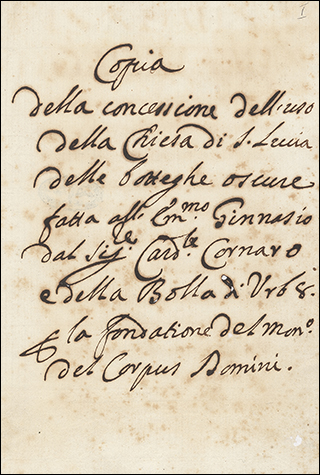 I
Copia
della concessione dell'uso
della Chiesa di S. Lucia
delle botteghe oscure
fatta all' Em.mo Ginnasio
dal Sig.e Card.le Cornaro
e della Bolla di Urb. 8.
& la fondatione del mon.o
del Corpus Domini.